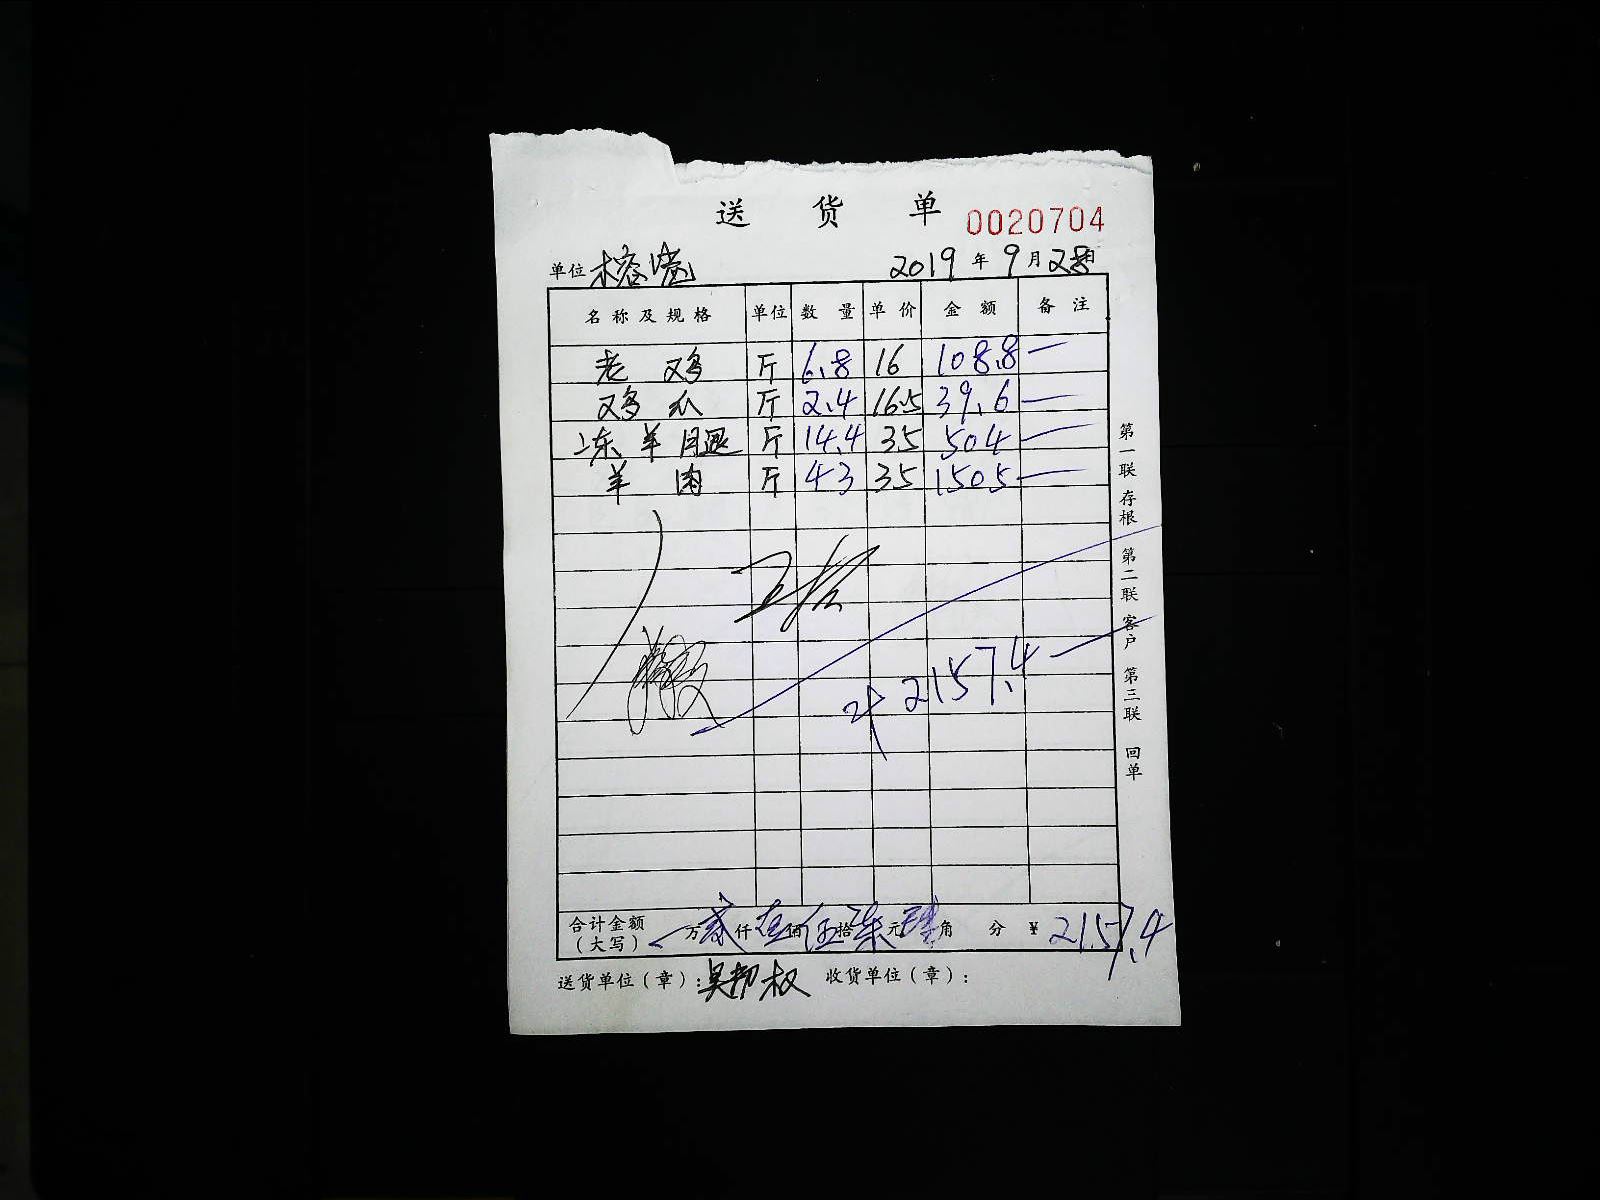 送 货 单 0020704
单位 榕 2019 年 9 月 28 日
名 称 及 规 格 单位 数 量 单 价 金 额 备 注
老 鸡 斤 6.8 16 108.8 —
鸡 爪 斤 2.4 16.5 39.6 —
冻 羊 腿 斤 14.4 35 504 —
羊 肉 斤 43 35 1505 —
2157.4 —
合计金额（大写） 万 贰 仟 壹 佰 伍 拾 柒 元 肆 角 分 ￥ 2157.4
送货单位（章）: 吴邦权 收货单位（章）:
第一联 存根 第二联 客户 第三联 回单